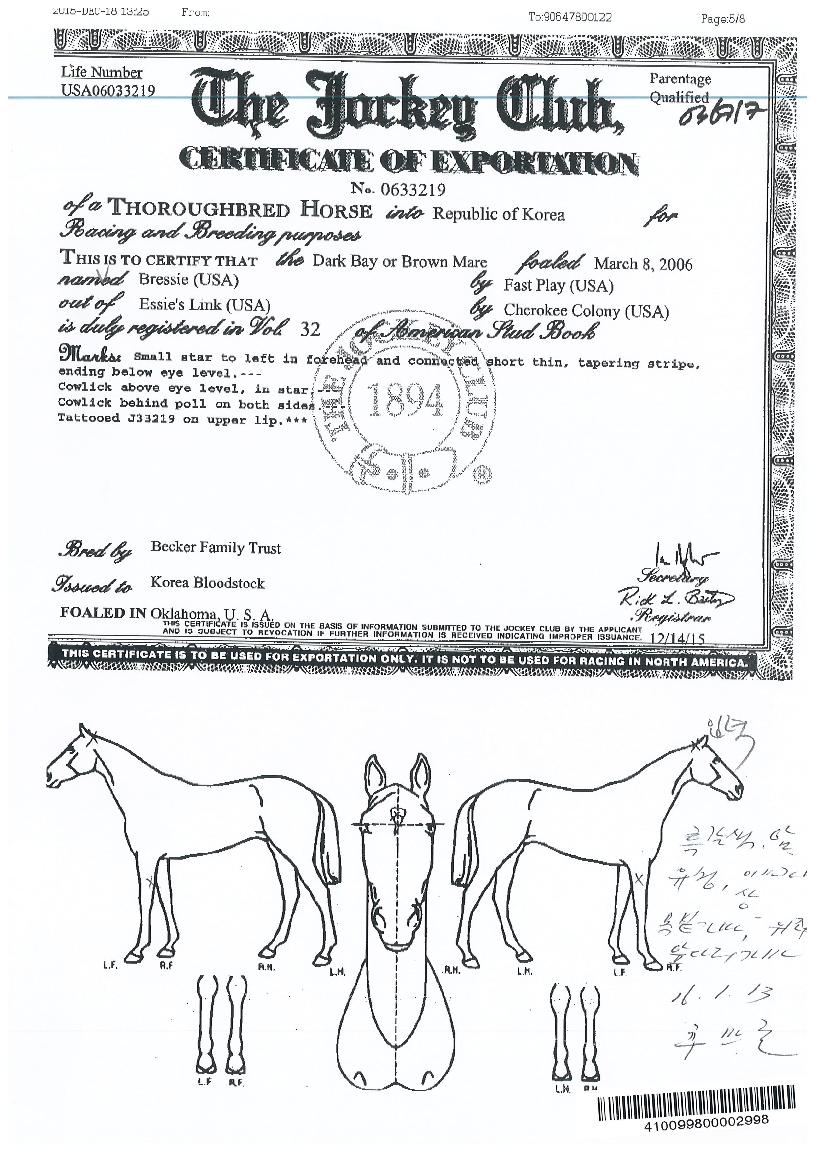 2015-DEC-18 13:25 From: To:90647800122 Page:5/8
Life Number
USA06033219
Parentage
Qualified
The Jockey Club,
CERTIFICATE OF EXPORTATION
No. 0633219
of a THOROUGHBRED HORSE into Republic of Korea for
Racing and Breeding purposes
THIS IS TO CERTIFY THAT the Dark Bay or Brown Mare foaled March 8, 2006
named Bressie (USA) by Fast Play (USA)
out of Essie's Link (USA) by Cherokee Colony (USA)
is duly registered in Vol. 32 of American Stud Book
Marks: Small star to left in forehead and connected short thin, tapering stripe,
ending below eye level.---
Cowlick above eye level, in star.---
Cowlick behind poll on both sides.---
Tattooed J33219 on upper lip.***
THE JOCKEY CLUB
1894
®
Bred by Becker Family Trust
Issued to Korea Bloodstock
Secretary
Registrar
FOALED IN Oklahoma, U. S. A.
THIS CERTIFICATE IS ISSUED ON THE BASIS OF INFORMATION SUBMITTED TO THE JOCKEY CLUB BY THE APPLICANT
AND IS SUBJECT TO REVOCATION IF FURTHER INFORMATION IS RECEIVED INDICATING IMPROPER ISSUANCE. 12/14/15
THIS CERTIFICATE IS TO BE USED FOR EXPORTATION ONLY. IT IS NOT TO BE USED FOR RACING IN NORTH AMERICA.
흑갈색. 암
16. 1. 13
L.F. R.F. R.H. L.H. R.H. L.H. L.F. R.F.
L.F. R.F. L.H. R.H.
410099800002998